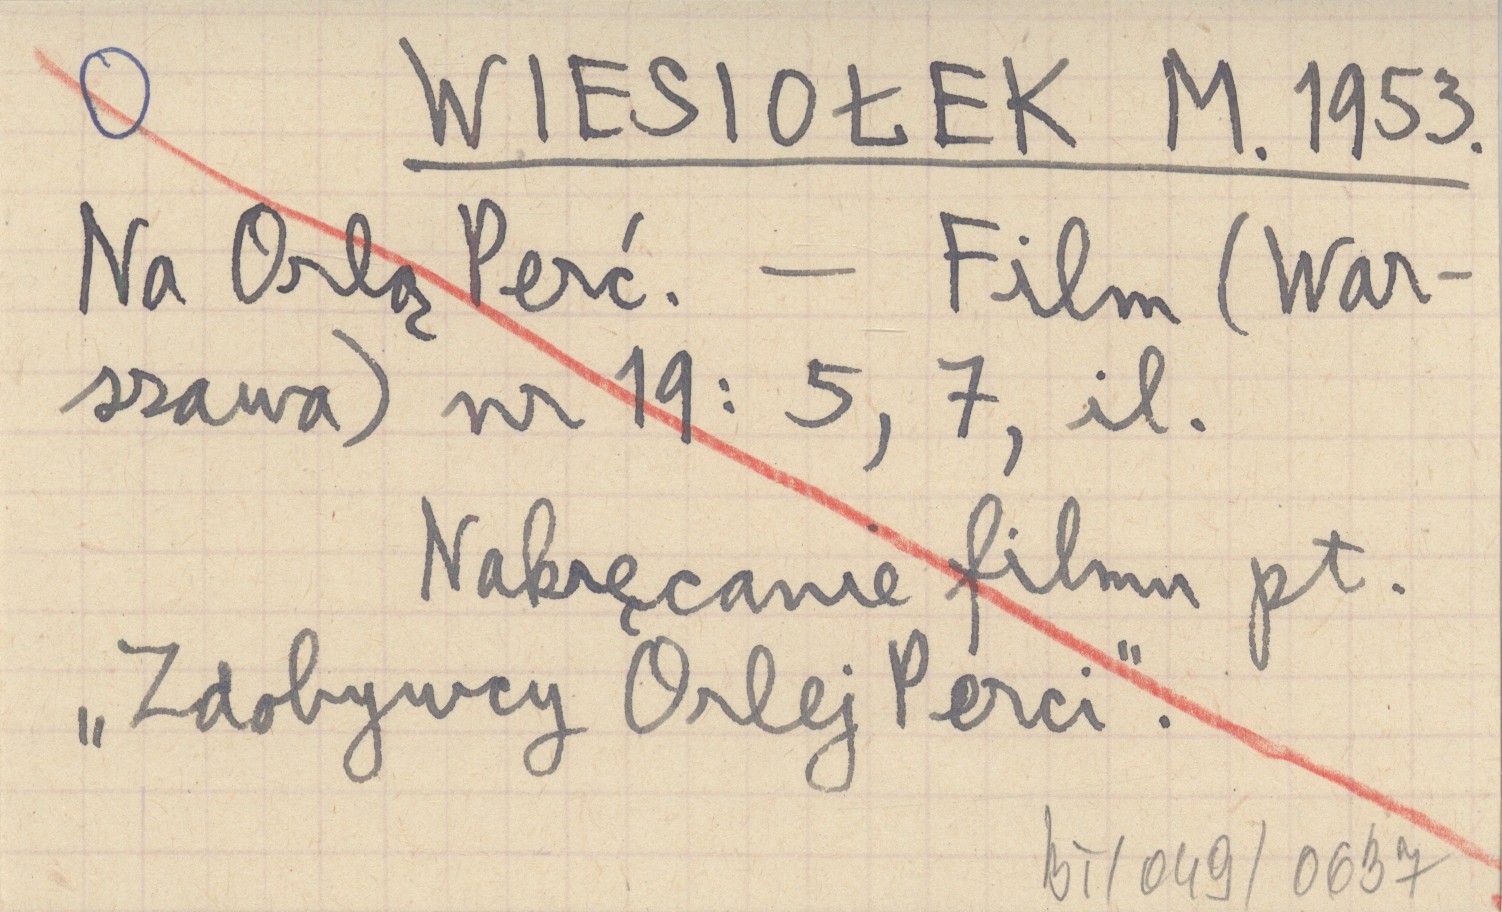 O WIESIOŁEK M. 1953.
Na Orlą Perć. — Film (War-
szawa) nr 19: 5, 7, il.
Nakręcanie filmu pt.
„Zdobywcy Orlej Perci".
BT/049/0637